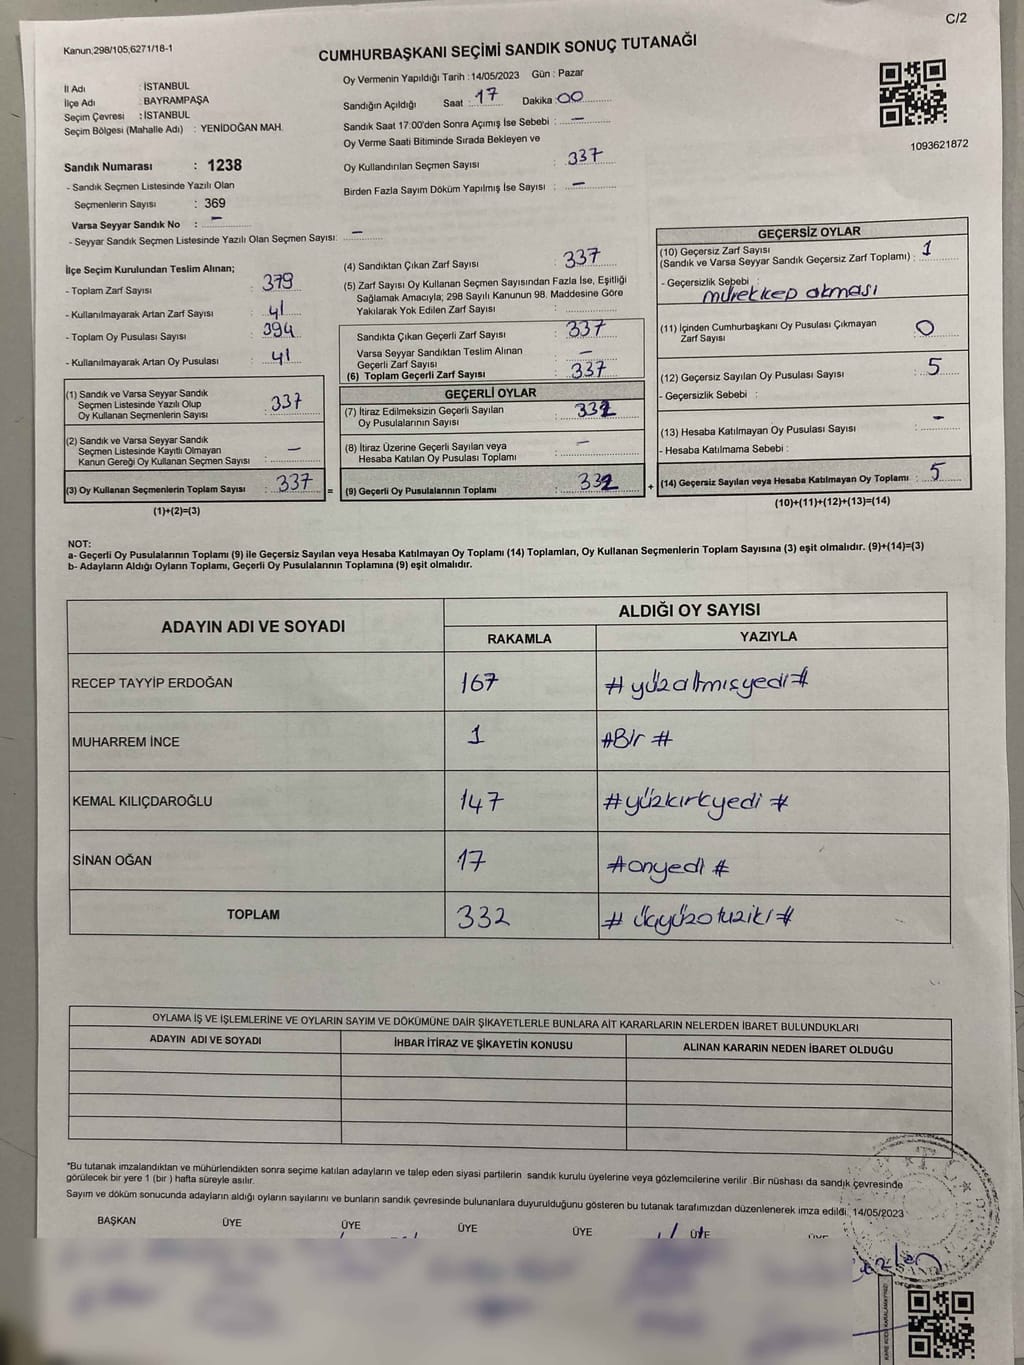 C/2
Kanun;298/105,6271/18-1
CUMHURBAŞKANI SEÇİMİ SANDIK SONUÇ TUTANAĞI
İl Adı : İSTANBUL
İlçe Adı : BAYRAMPAŞA
Seçim Çevresi : İSTANBUL
Seçim Bölgesi (Mahalle Adı) : YENİDOĞAN MAH.
Oy Vermenin Yapıldığı Tarih : 14/05/2023 Gün : Pazar
Sandığın Açıldığı Saat : 17 Dakika : 00
Sandık Saat 17:00'den Sonra Açımış İse Sebebi : –
Oy Verme Saati Bitiminde Sırada Bekleyen ve
Oy Kullandırılan Seçmen Sayısı : 337
Birden Fazla Sayım Döküm Yapılmış İse Sayısı : –
1093621872
Sandık Numarası : 1238
- Sandık Seçmen Listesinde Yazılı Olan
Seçmenlerin Sayısı : 369
Varsa Seyyar Sandık No : –
- Seyyar Sandık Seçmen Listesinde Yazılı Olan Seçmen Sayısı: –
İlçe Seçim Kurulundan Teslim Alınan;
- Toplam Zarf Sayısı : 379
- Kullanılmayarak Artan Zarf Sayısı : 41
- Toplam Oy Pusulası Sayısı : 394
- Kullanılmayarak Artan Oy Pusulası : 41
(1) Sandık ve Varsa Seyyar Sandık
Seçmen Listesinde Yazılı Olup
Oy Kullanan Seçmenlerin Sayısı : 337
(2) Sandık ve Varsa Seyyar Sandık
Seçmen Listesinde Kayıtlı Olmayan
Kanun Gereği Oy Kullanan Seçmen Sayısı : –
(3) Oy Kullanan Seçmenlerin Toplam Sayısı : 337 =
(1)+(2)=(3)
(4) Sandıktan Çıkan Zarf Sayısı : 337
(5) Zarf Sayısı Oy Kullanan Seçmen Sayısından Fazla İse, Eşitliği
Sağlamak Amacıyla; 298 Sayılı Kanunun 98. Maddesine Göre
Yakılarak Yok Edilen Zarf Sayısı :
Sandıkta Çıkan Geçerli Zarf Sayısı : 337
Varsa Seyyar Sandıktan Teslim Alınan
Geçerli Zarf Sayısı : –
(6) Toplam Geçerli Zarf Sayısı : 337
GEÇERLİ OYLAR
(7) İtiraz Edilmeksizin Geçerli Sayılan
Oy Pusulasının Sayısı : 332
(8) İtiraz Üzerine Geçerli Sayılan veya
Hesaba Katılan Oy Pusulası Toplamı : –
(9) Geçerli Oy Pusulalarının Toplamı : 332 +
GEÇERSİZ OYLAR
(10) Geçersiz Zarf Sayısı
(Sandık ve Varsa Seyyar Sandık Geçersiz Zarf Toplamı) : 1
- Geçersizlik Sebebi :
mürekkep akması
(11) İçinden Cumhurbaşkanı Oy Pusulası Çıkmayan
Zarf Sayısı : 0
(12) Geçersiz Sayılan Oy Pusulası Sayısı : 5
- Geçersizlik Sebebi :
(13) Hesaba Katılmayan Oy Pusulası Sayısı : –
- Hesaba Katılmama Sebebi :
(14) Geçersiz Sayılan veya Hesaba Katılmayan Oy Toplamı : 5
(10)+(11)+(12)+(13)=(14)
NOT:
a- Geçerli Oy Pusulalarının Toplamı (9) ile Geçersiz Sayılan veya Hesaba Katılmayan Oy Toplamı (14) Toplamları, Oy Kullanan Seçmenlerin Toplam Sayısına (3) eşit olmalıdır. (9)+(14)=(3)
b- Adayların Aldığı Oyların Toplamı, Geçerli Oy Pusulalarının Toplamına (9) eşit olmalıdır.
ADAYIN ADI VE SOYADI
ALDIĞI OY SAYISI
RAKAMLA YAZIYLA
RECEP TAYYİP ERDOĞAN 167 # yüzaltmışyedi #
MUHARREM İNCE 1 #Bir #
KEMAL KILIÇDAROĞLU 147 #yüzkırkyedi #
SİNAN OĞAN 17 #onyedi #
TOPLAM 332 # üçyüzotuziki #
OYLAMA İŞ VE İŞLEMLERİNE VE OYLARIN SAYIM VE DÖKÜMÜNE DAİR ŞİKAYETLERLE BUNLARA AİT KARARLARIN NELERDEN İBARET BULUNDUKLARI
ADAYIN ADI VE SOYADI İHBAR İTİRAZ VE ŞİKAYETİN KONUSU ALINAN KARARIN NEDEN İBARET OLDUĞU
*Bu tutanak imzalandıktan ve mühürlendikten sonra seçime katılan adayların ve talep eden siyasi partilerin sandık kurulu üyelerine veya gözlemcilerine verilir .Bir nüshası da sandık çevresinde
görülecek bir yere 1 (bir ) hafta süreyle asılır.
Sayım ve döküm sonucunda adayların aldığı oyların sayılarını ve bunların sandık çevresinde bulunanlara duyurulduğunu gösteren bu tutanak tarafımızdan düzenlenerek imza edildi. 14/05/2023
BAŞKAN ÜYE ÜYE ÜYE ÜYE ÜYE